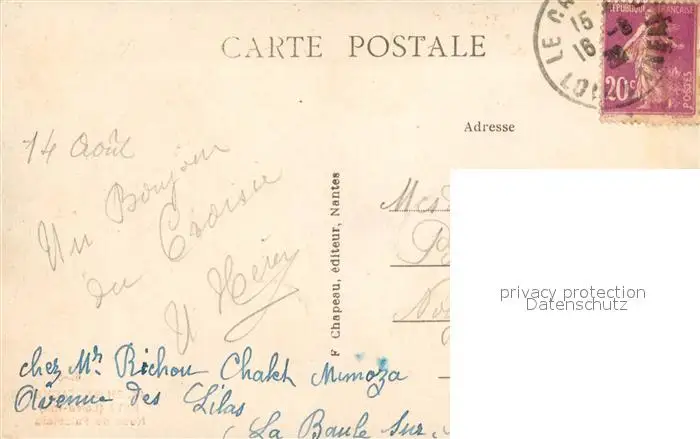 CARTE POSTALE
LE
15
16
LOT
REPUBLIQUE FRANÇAISE
20c
POSTES
Adresse
14 Août
Un Bonjour
du Croisic
F Chapeau, éditeur, Nantes
privacy protection
Datenschutz
chez Mr Richou Chalet Mimoza
Avenue des Lilas
(La Baule Sur